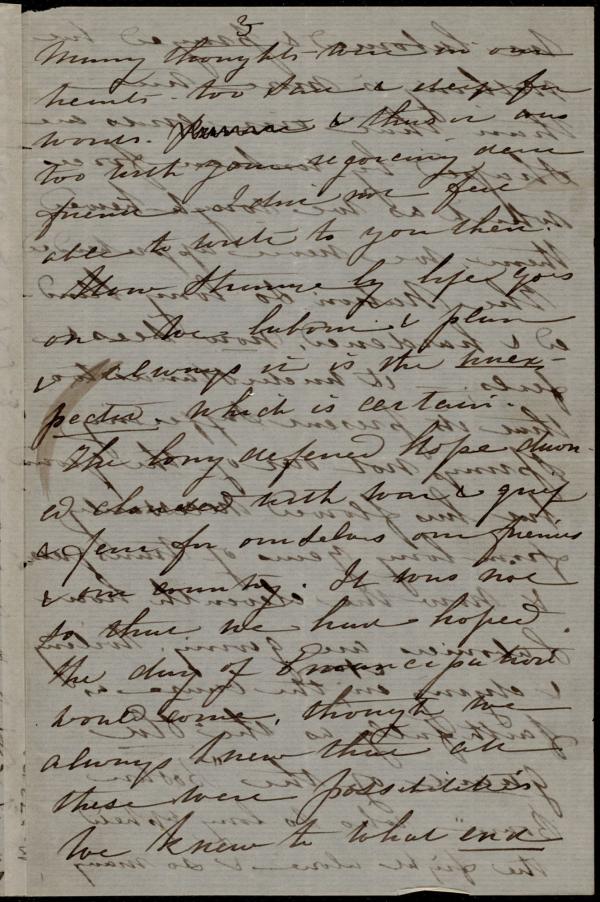 3
Many thoughts were in our
hearts - too sad & deep for
words. & thus it was
too with you rejoicing dear
friend I did not feel
able to write to you then.
How strange by life goes
on We labour & plan
& always it is the unex-
pected which is certain -
The long deferred hope dawn-
ed clouded with war & grief
& fear for ourselves our friends
& our country. It was not
so that we have hoped
the day of Emancipation
would come, though we
always knew that all
these were possibilities
We knew to what end